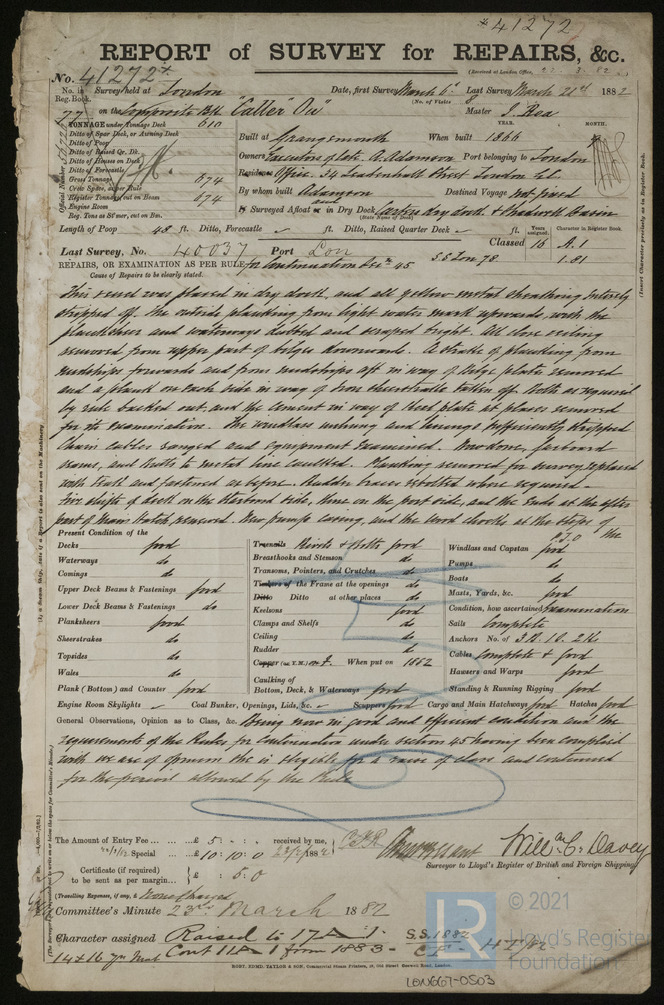 *41272
REPORT of SURVEY for REPAIRS, &c.
(Received at London Office, 22. 3. 82)
No. 41272*
No. in Reg. Book. Survey held at London Date, first Survey March 6th Last Survey March 21st 1882
(No. of Visits 8
77 on the Composite Bk "Caller Ou" Master J. Rea
TONNAGE under Tonnage Deck 610
Ditto of Spar Deck, or Awning Deck
Ditto of Poop
Ditto of Raised Qr. Dk.
Ditto of Houses on Deck
Ditto of Forecastle
Gross Tonnage 674
Crew Space, as per Rule
Register Tonnage, cut on Beam 674
Engine Room
Reg. Tons as St'mer, cut on Bm.
Official Number
YEAR. MONTH.
Built at Grangemouth When built 1866
Owners Executors of late A. Adamson Port belonging to London
Residence Office. 34 Leadenhall Street London E.C.
By whom built Adamson Destined Voyage not fixed
If Surveyed Afloat or in Dry Dock and
(State Name of Dock)
Length of Poop 48 ft. Ditto, Forecastle ft. Ditto, Raised Quarter Deck ft.
Last Survey, No. 40037 Port Lon
Classed Years assigned. Character in Register Book.
16 A.1
SS Lon 78. 1.81
(Insert Character precisely as in Register Book.
REPAIRS, OR EXAMINATION AS PER RULE, for Continuation Secn 45
Cause of Repairs to be clearly stated.
This vessel was placed in dry dock, and all yellow metal sheathing entirely
stripped off. The outside planking from light water mark upwards, with the
plansheer and waterways dubbed and scraped bright. All close ceiling
removed from upper part of bilges downwards. A strake of planking from
midships forwards and from midships aft in way of bilge plate removed
and a plank on each side in way of iron sheerstrake taken off. Bolts as required
by rule backed out, and the cement in way of keel plate at places removed
for its examination. The windlass unhung and linings sufficiently stripped
Chain cables ranged and equipment examined. Now done, fore and aft
seams, and butts to metal line caulked. Planking removed for survey replaced
with teak and fastened as before. Rudder braces rebolted where required.
Five shifts of deck on the starboard side, three on the port side, and the ends at the after
part of main hatch renewed. New pumps casing, and the wood chocks at the steps of the
P.T.O
Present Condition of the
Decks good
Waterways do
Comings do
Upper Deck Beams & Fastenings good
Lower Deck Beams & Fastenings do
Planksheers good
Sheerstrakes do
Topsides do
Wales do
Plank (Bottom) and Counter good
Engine Room Skylights
Treenails Rivets & Bolts good
Breasthooks and Stemson do
Transoms, Pointers, and Crutches do
Timbers of the Frame at the openings do
Ditto Ditto at other places do
Keelsons good
Clamps and Shelfs do
Ceiling do
Rudder do
Copper (or Y.M.) When put on 1882
Caulking of
Bottom, Deck, & Waterways good
Coal Bunker, Openings, Lids, &c. Scuppers good Cargo and Main Hatchways good Hatches good
Windlass and Capstan good
Pumps do
Boats do
Masts, Yards, &c. good
Condition, how ascertained Examination
Sails Complete
Anchors No. of 3B. 1S. 2K
Cables Complete & Good
Hawsers and Warps good
Standing & Running Rigging good
General Observations, Opinion as to Class, &c. Being now in good and efficient condition and the
requirements of the Rules for Continuation under section 45 having been complied
with we are of opinion she is eligible for a raise of class and continued
for the period allowed by the Rule
The Amount of Entry Fee £ 5 : - : received by me,
Special £ 10 : 10 : 0 1882
Certificate (if required)
to be sent as per margin £ : 5 : 0
(Travelling Expenses, if any, £ None charged
Will. C. Davey
Surveyor to Lloyd's Register of British and Foreign Shipping
Committee's Minute 23rd March 1882
Character assigned Raised to 17A 1.
Cont 11A 1 from 1883
S.S. 1882
14 & 16
ROBT. EDMD. TAYLOR & SON, Commercial Steam Printers, 19, Old Street Goswell Road, London.
© 2021
LR
Lloyd's Register
Foundation
LON667-0503